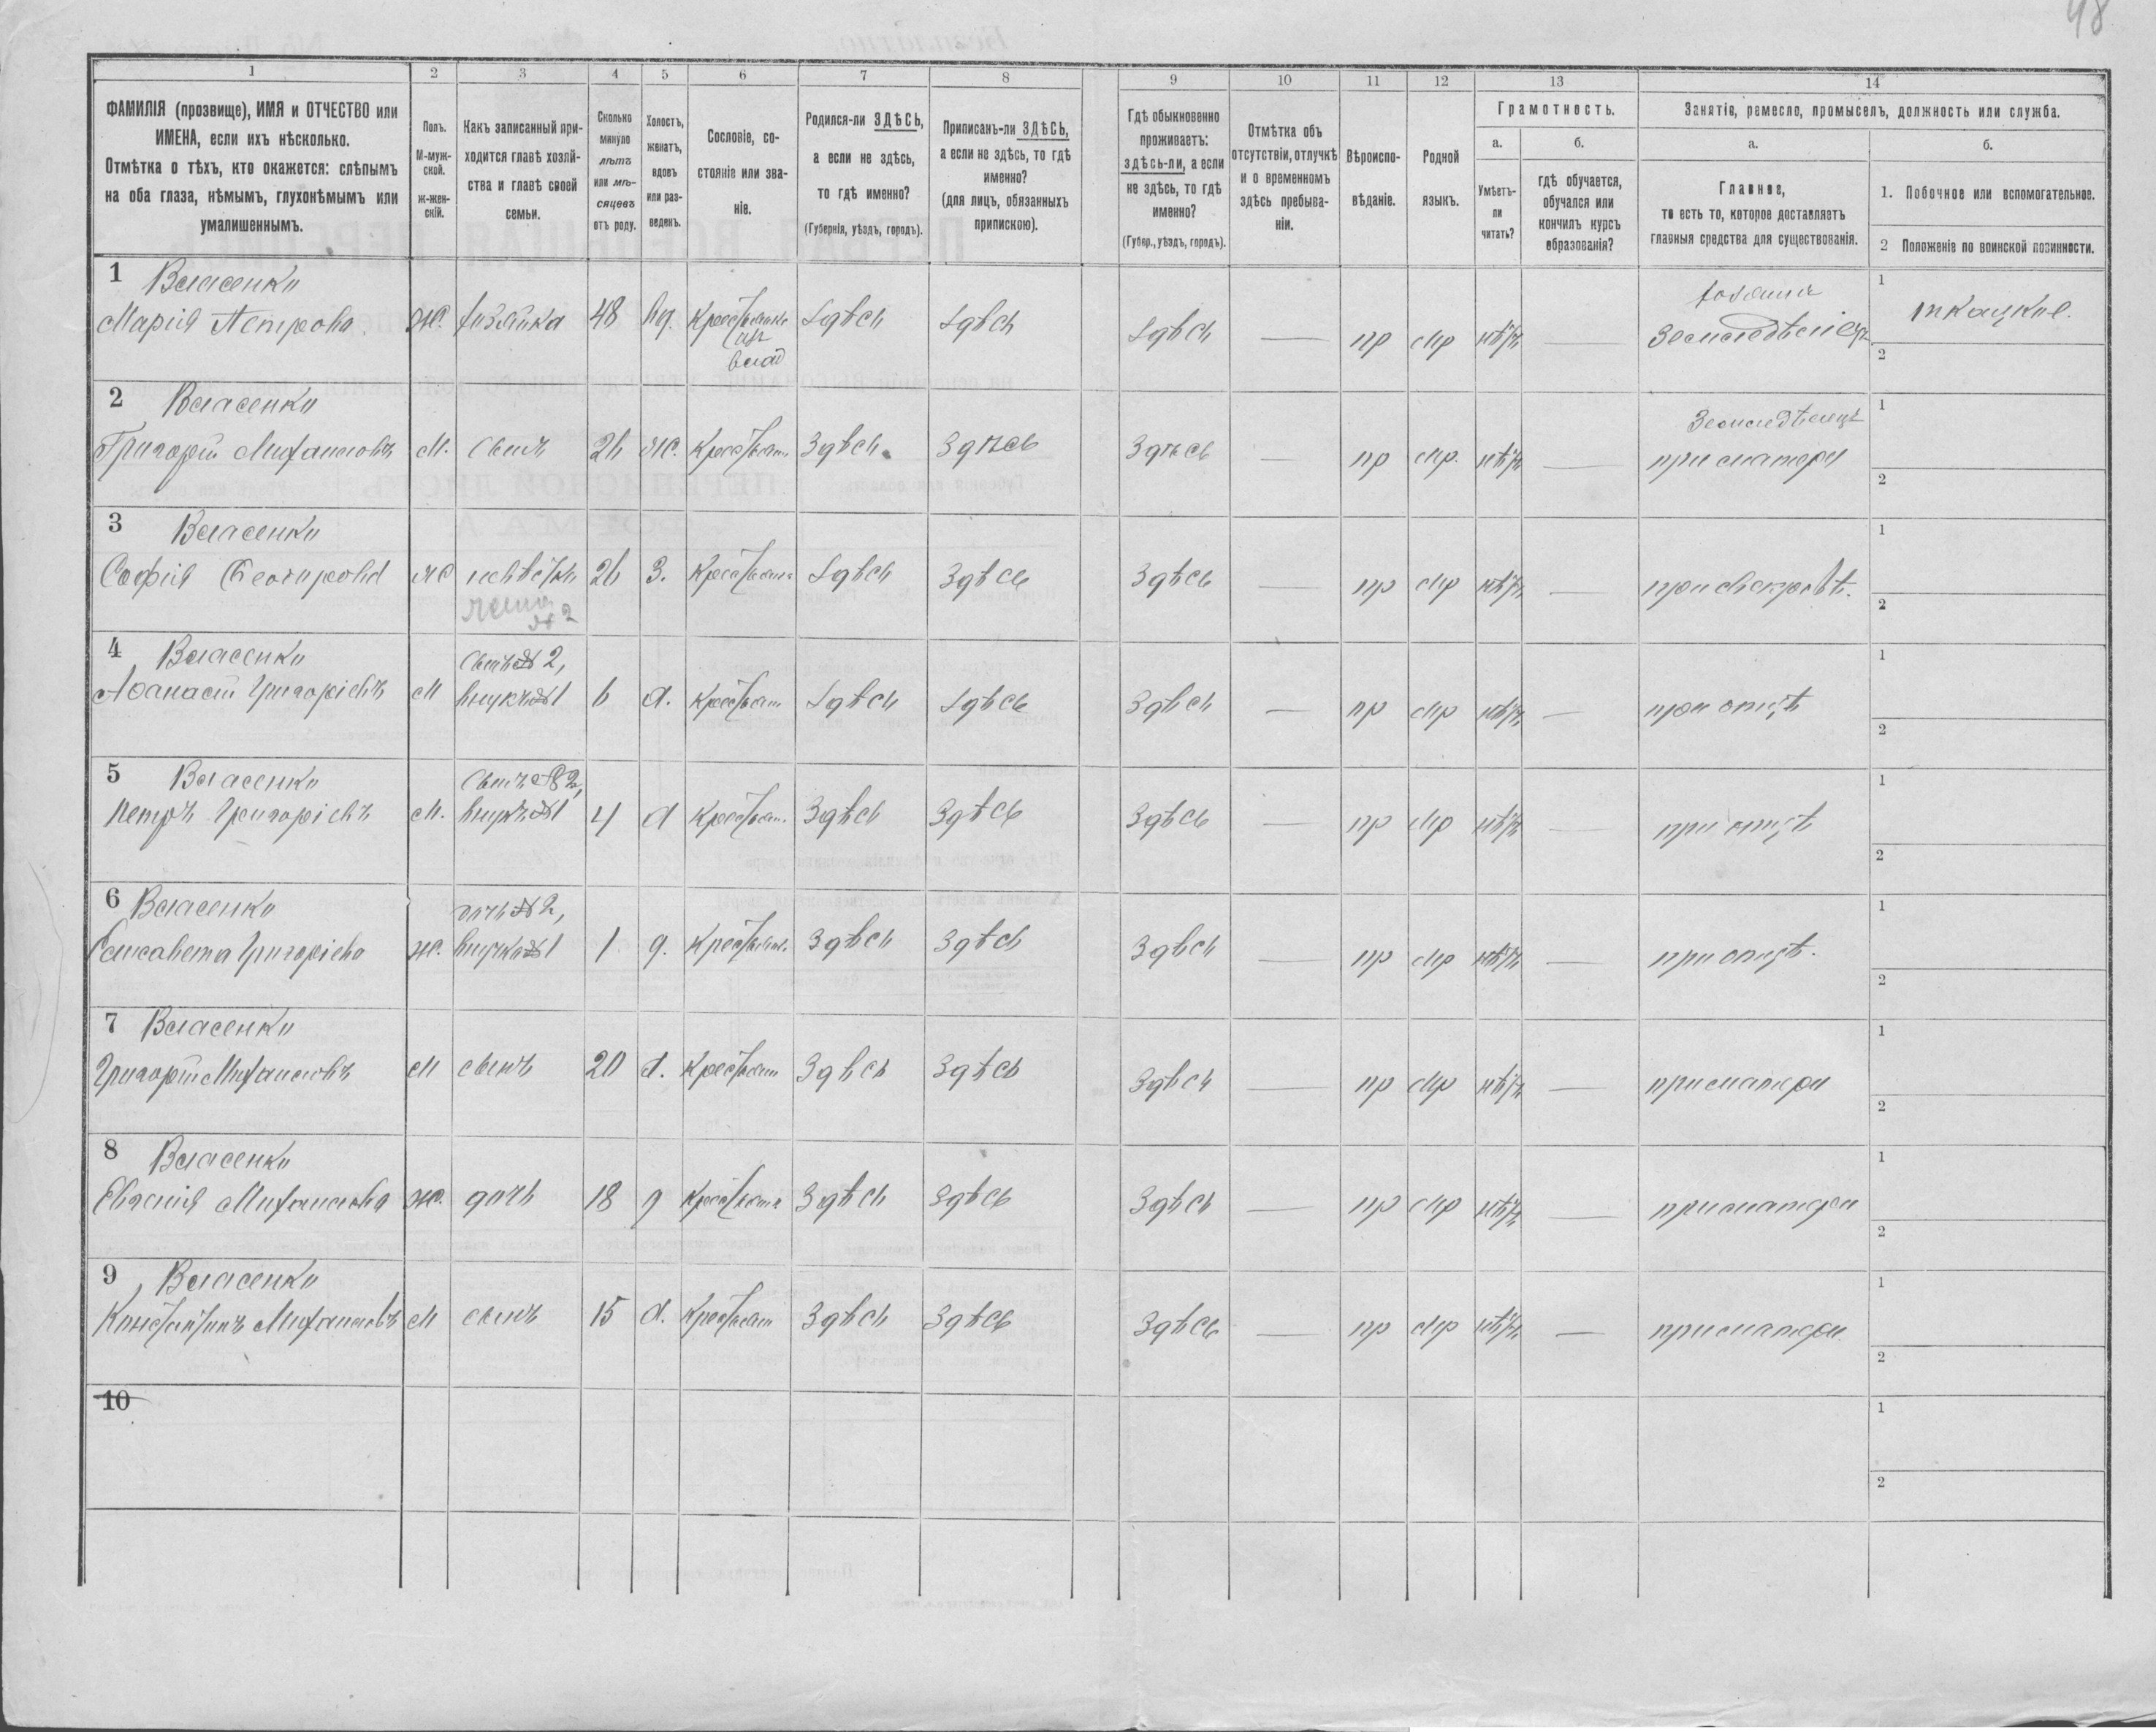 48
1 2 3 4 5 6 7 8 9 10 11 12 13 14
ФАМИЛІЯ (прозвище), ИМЯ и ОТЧЕСТВО или
ИМЕНА, если ихъ нѣсколько.
Отмѣтка о тѣхъ, кто окажется: слѣпымъ
на оба глаза, нѣмымъ, глухонѣмымъ или
умалишеннымъ.
Полъ.
М-муж-
ской.
ж-жен-
скій.
Какъ записанный при-
ходится главѣ хозяй-
ства и главѣ своей
семьи.
Сколько
минуло
лѣтъ
или мѣ-
сяцевъ
отъ роду.
Холостъ,
женатъ,
вдовъ
или раз-
веденъ.
Сословіе, со-
стояніе или зва-
ніе.
Родился-ли ЗДѢСЬ,
а если не здѣсь,
то гдѣ именно?
(Губернія, уѣздъ, городъ).
Приписанъ-ли ЗДѢСЬ,
а если не здѣсь, то гдѣ
именно?
(для лицъ, обязанныхъ
припискою).
Гдѣ обыкновенно
проживаетъ:
здѣсь-ли, а если
не здѣсь, то гдѣ
именно?
(Губер., уѣздъ, городъ).
Отмѣтка объ
отсутствіи, отлучкѣ
и о временномъ
здѣсь пребыва-
ніи.
Вѣроиспо-
вѣданіе.
Родной
языкъ.
Грамотность.
а.
Умѣетъ-
ли
читать?
б.
гдѣ обучается,
обучался или
кончилъ курсъ
образованія?
Занятіе, ремесло, промыселъ, должность или служба.
а.
Главное,
то есть то, которое доставляетъ
главныя средства для существованія.
б.
1. Побочное или вспомогательное.
2 Положеніе по воинской повинности.
1 Власенко
Марія Петрова ж. хозяйка 48 вд. Крестьянка
влад
здѣсь здѣсь здѣсь — пр мр нѣтъ —
хозяинъ
земледѣлецъ
1 ткацкое.
2
2 Власенко
Григорій Михайловъ м. сынъ 26 ж. Крестьян. здѣсь здѣсь здѣсь — пр мр. нѣтъ —
земледѣлецъ
при матери
1
2
3 Власенко
Софія ж невѣстка 26 З. Крестьян. здѣсь здѣсь здѣсь — пр мр нѣтъ — при свекровѣ.
жена
№ 2
1
2
4 Власенко
Афанасій Григоріевъ м
сынъ № 2,
внукъ № 1
6 х. крестьян здѣсь здѣсь здѣсь — пр мр нѣтъ — при отцѣ
1
2
5 Власенко
Петръ Григоріевъ м.
сынъ № 2,
внукъ № 1
4 х Крестьян. здѣсь здѣсь здѣсь — пр мр нѣтъ — при отцѣ
1
2
6 Власенко
Елисавета Григоріева ж.
дочь № 2,
внучка № 1
1 д. крестьян. здѣсь здѣсь здѣсь — пр мр нѣтъ — при отцѣ.
1
2
7 Власенко
Григорій Михайловъ м сынъ 20 х. Крестьян здѣсь здѣсь здѣсь — пр мр нѣтъ — при матери
1
2
8 Власенко
Михайлова ж. дочь 18 д крестьян здѣсь здѣсь здѣсь — пр мр нѣтъ — при матери
1
2
9 Власенко
Константинъ Михайловъ м сынъ 15 х. Крестьян здѣсь здѣсь здѣсь — пр мр нѣтъ — при матери.
1
2
10
1
2